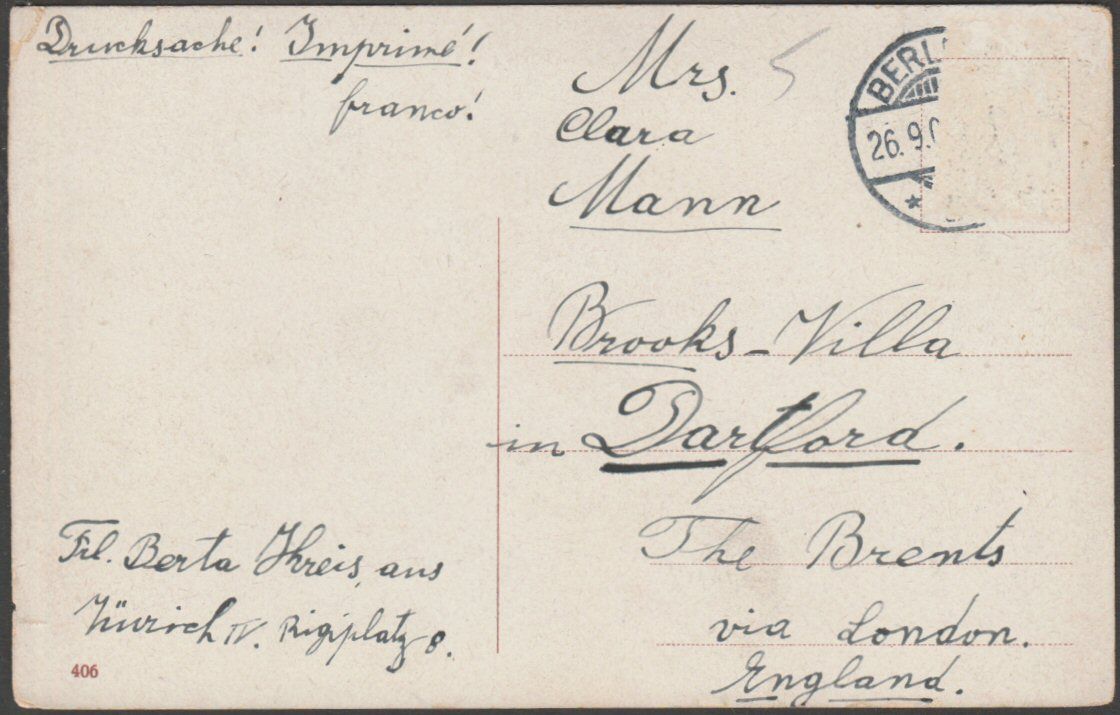 Drucksache! Imprimé!
franco!
Mrs.
Clara
Mann
BERL
26.9.0
Brooks-Villa
in Dartford.
The Brents
via London.
England.
Frl. Berta Kreis, aus
Zürich IV. Rigiplatz 8.
406